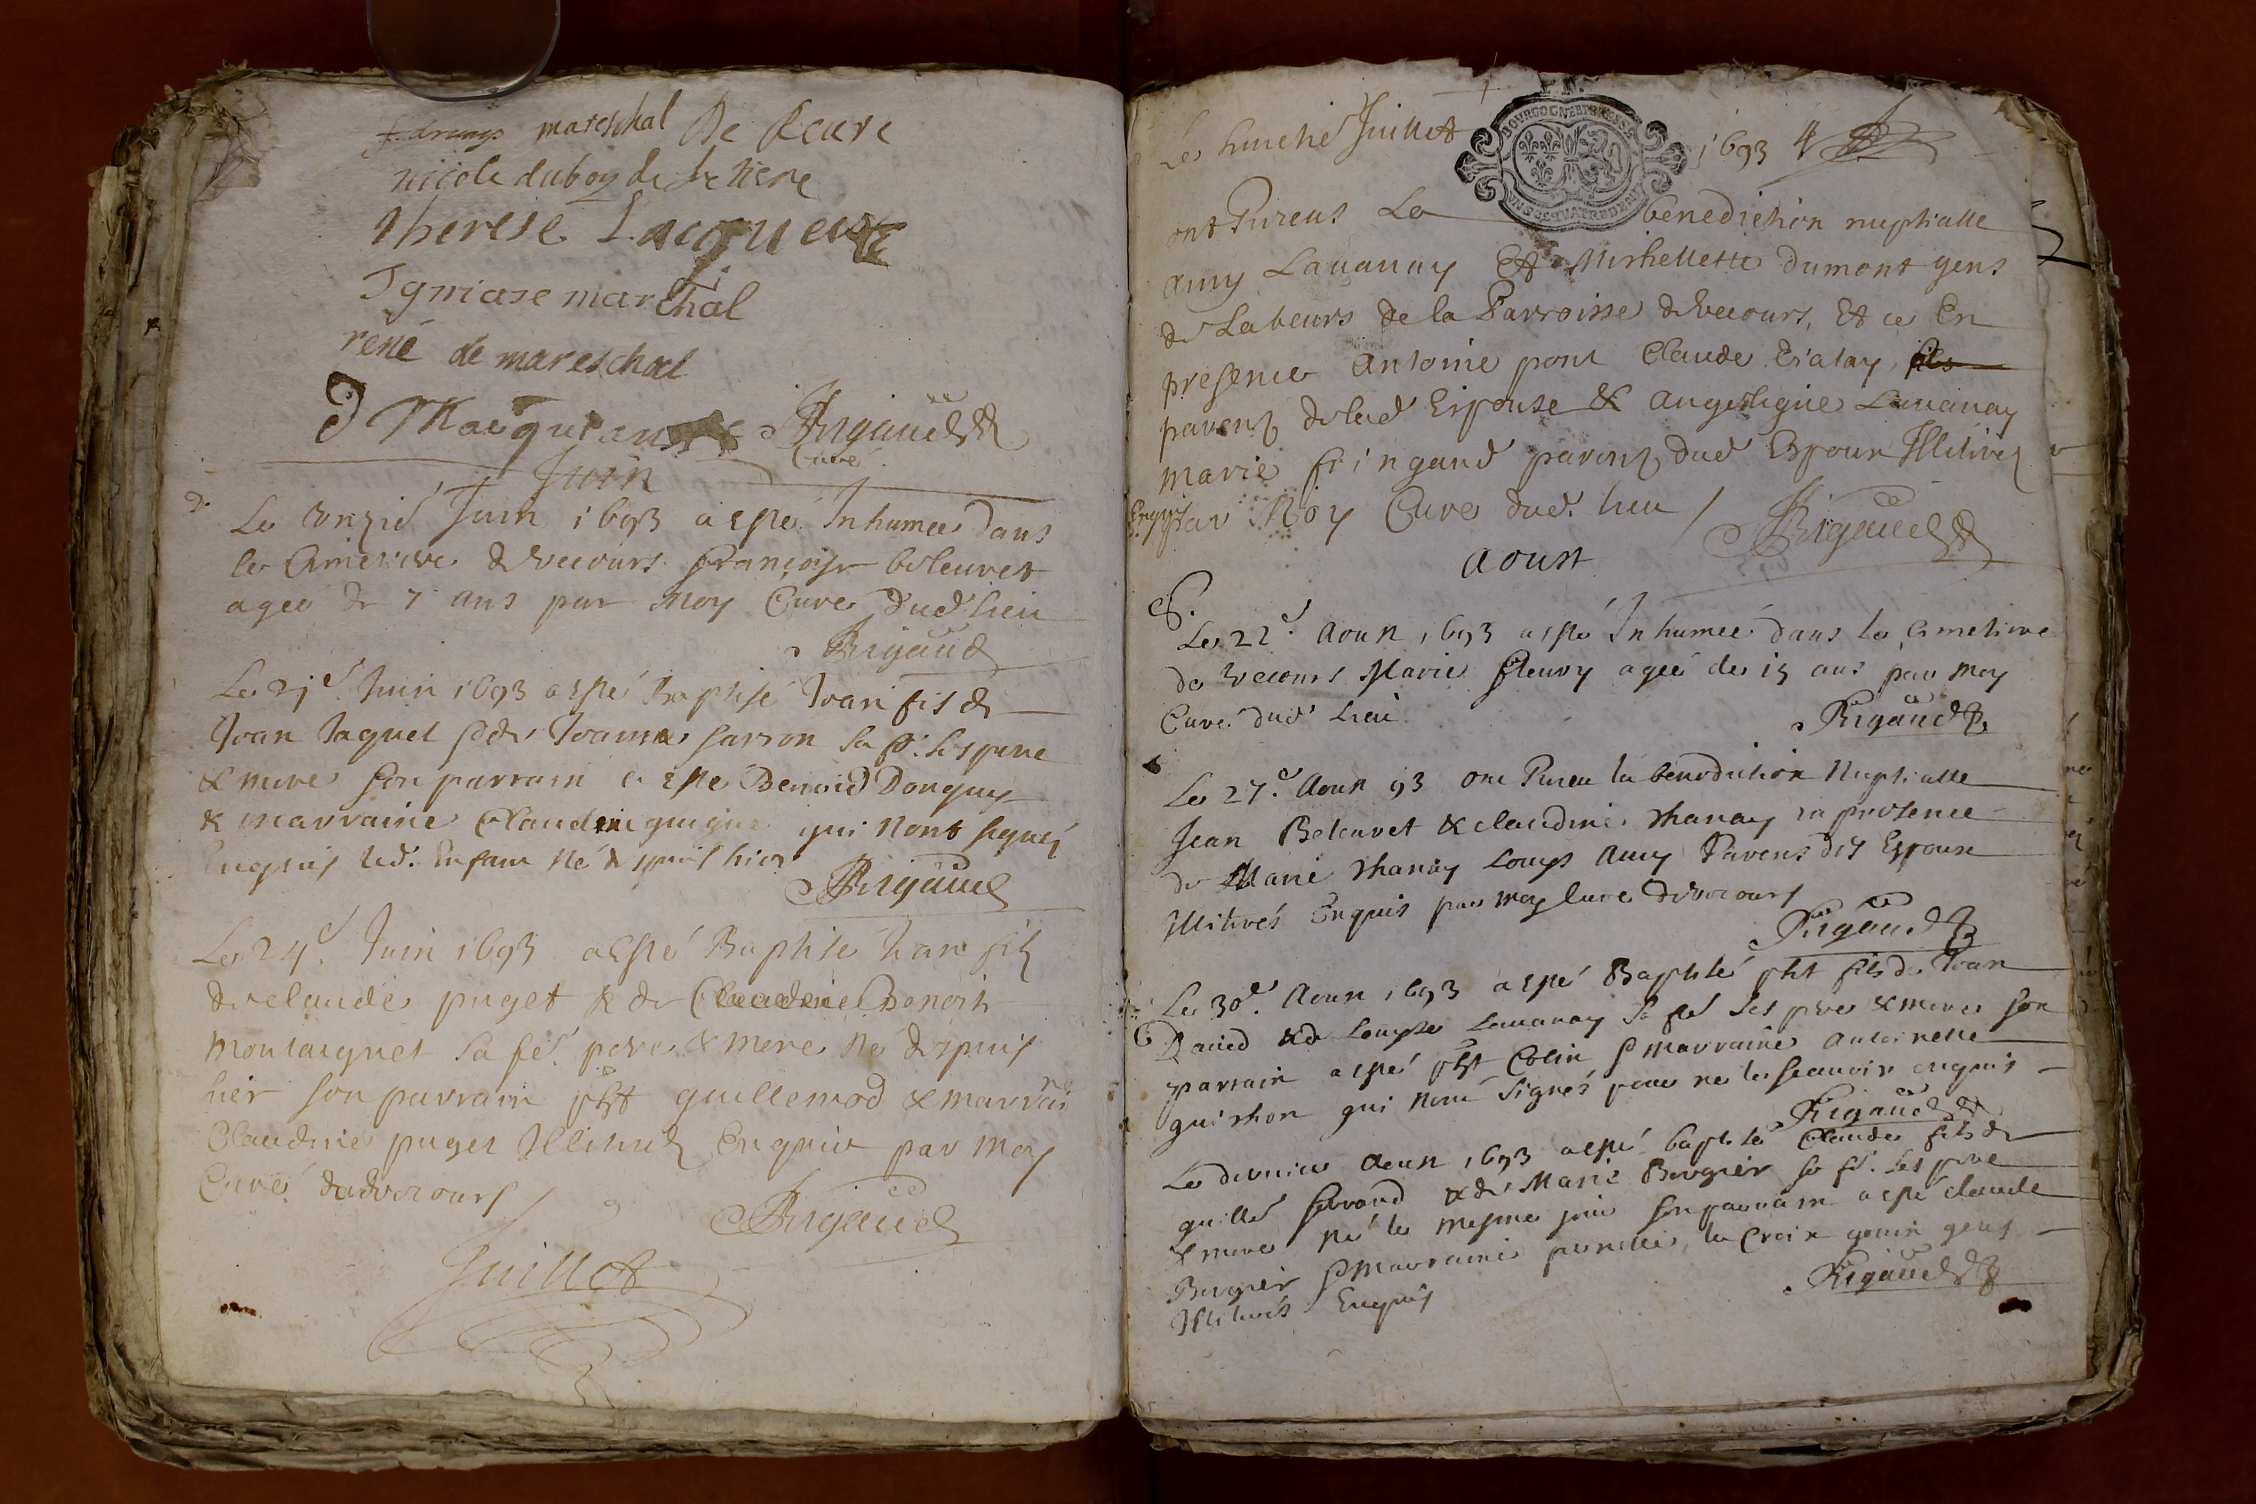 mareschal De
nicole duboy de
therese Lacqueuse
Igniase marchal
rené de mareschal
Rigaud
Curé
Juin
Le onzié Juin 1693 a esté Inhumée dans
le Cimetiere de vecours françoise beleuvet
agee de 7 ans par Moy Curé dud. lieu
Rigaud
Le 21e. Juin 1693 a esté Baptisé Jean fils de
Jean Jaquet & de Jeanne sarron sa fe. ses pere
& mere son parrain a esté Benoid Donguy
& marraine Claudine guigue qui nont signés
enquis led. Enfant né depuis hier
Rigaud
Le 24e. Juin 1693 a esté Baptisé Jean fils
de claude puget & de Claudine Benoit
montaignet sa fe. pere & mere né depuis
hier son parrain pht guillemod & marrai
Claudine puget Illitirez Enquis par moy
Curé de vecours
Rigaud
Juillet
Le huictié Juillet 1693
BOVRGOGNE ET BRESSE
ont Receus La benediction nuptialle
amy Lavanay Et Michellette dumont gens
de Labeurs de la Parroisse de vecours, Et ce En
presence Antoine pont Claude
parens de lad Espouse & angeligue Lavanay
marie fringand parens dud Espoux Illitirez
Enquis par Moy Curé dud. lieu
Rigaud
Aoust
Le 22e. Aoust 1693 a esté Inhumée dans le Cimetiere
de vecours Marie fleury agee de 15 ans par moy
Curé dud lieu
Rigaud
Le 27e. Aoust 93 ont Receu la benediction Nuptialle
Jean Beleuvet & claudine thanay en presence
de Marie thanay Louys Amy Parens des Espoux
Illitirés Enquis par moy Curé de vecours
Rigaud
Le 30e. Aoust 1693 a esté Baptisé pht fils de Jean
David & de Louyse Lavanay sa fe ses pere & mere son
parrain a esté pht Colin & marraine antoinette
guichon qui nont signés pour ne le scavoir enquis
Rigaud
Le dernier Aoust 1693 a esté baptisé Claude fils de
guille ferrand & de Marie Bergier sa fe. ses pere
& mere né le mesme jour son parrain a esté claude
Bergier & marraine pernette la Croix gens
Illitirés Enquis
Rigaud